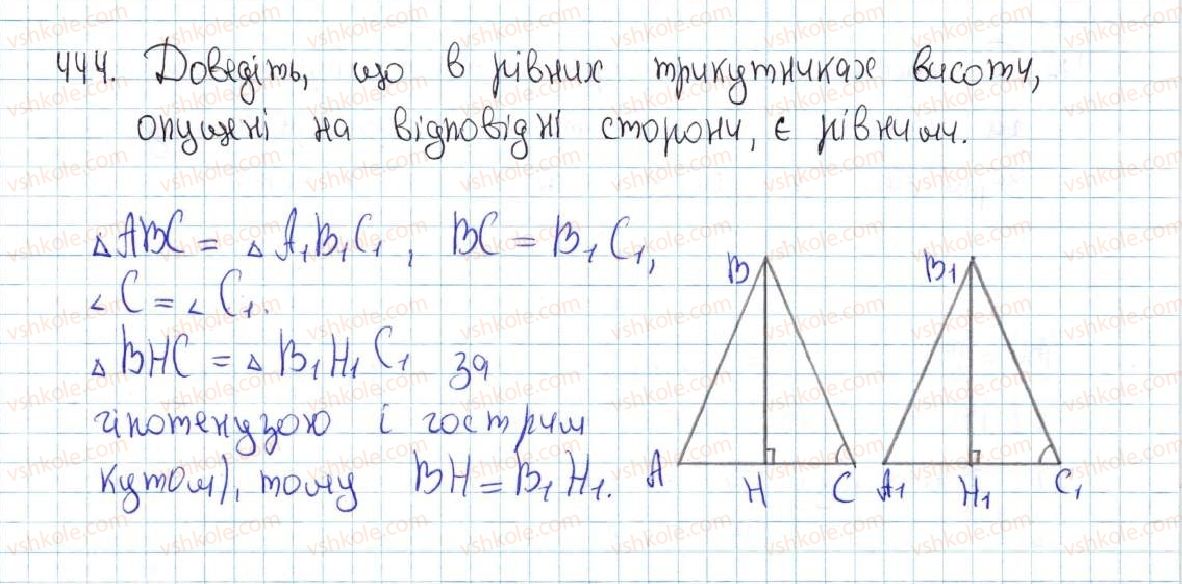 444. Доведіть, що в рівних трикутниках висоти,
опущені на відповідні сторони, є рівними.
△ABC = △A₁B₁C₁, BC = B₁C₁,
∠C = ∠C₁.
△BHC = △B₁H₁C₁ за
гіпотенузою і гострим
кутом), тому BH = B₁H₁.
B B₁
A H C A₁ H₁ C₁
vshkole.com